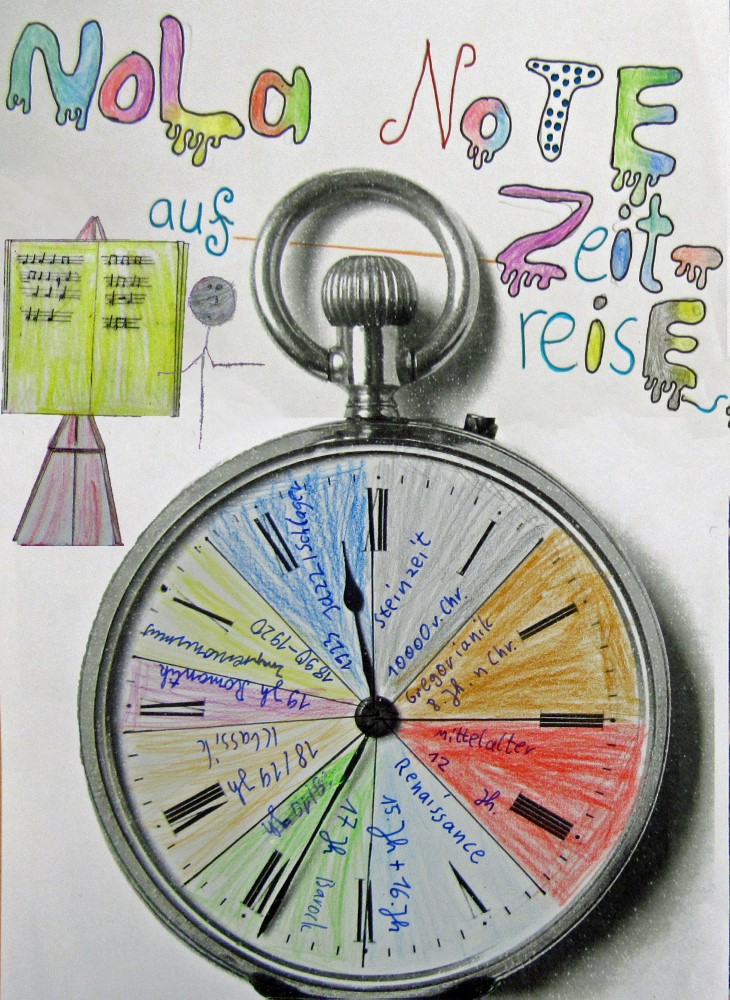 NoLa NoTE
auf Zeit-
reisE
XII
Steinzeit
10000 v. Chr.
I
II
Gregorianik
8. Jh. n Chr.
III
Mittelalter
12
Jh.
IIII
Renaissance
15. Jh + 16 Jh.
V
VI
17 Jh Barock
VII
18/19 Jh
Klassik
VIII
19 Jh Romantik
IX
1890-1920
Impressionismus
X
1923 Jazz-/Schlager
XI